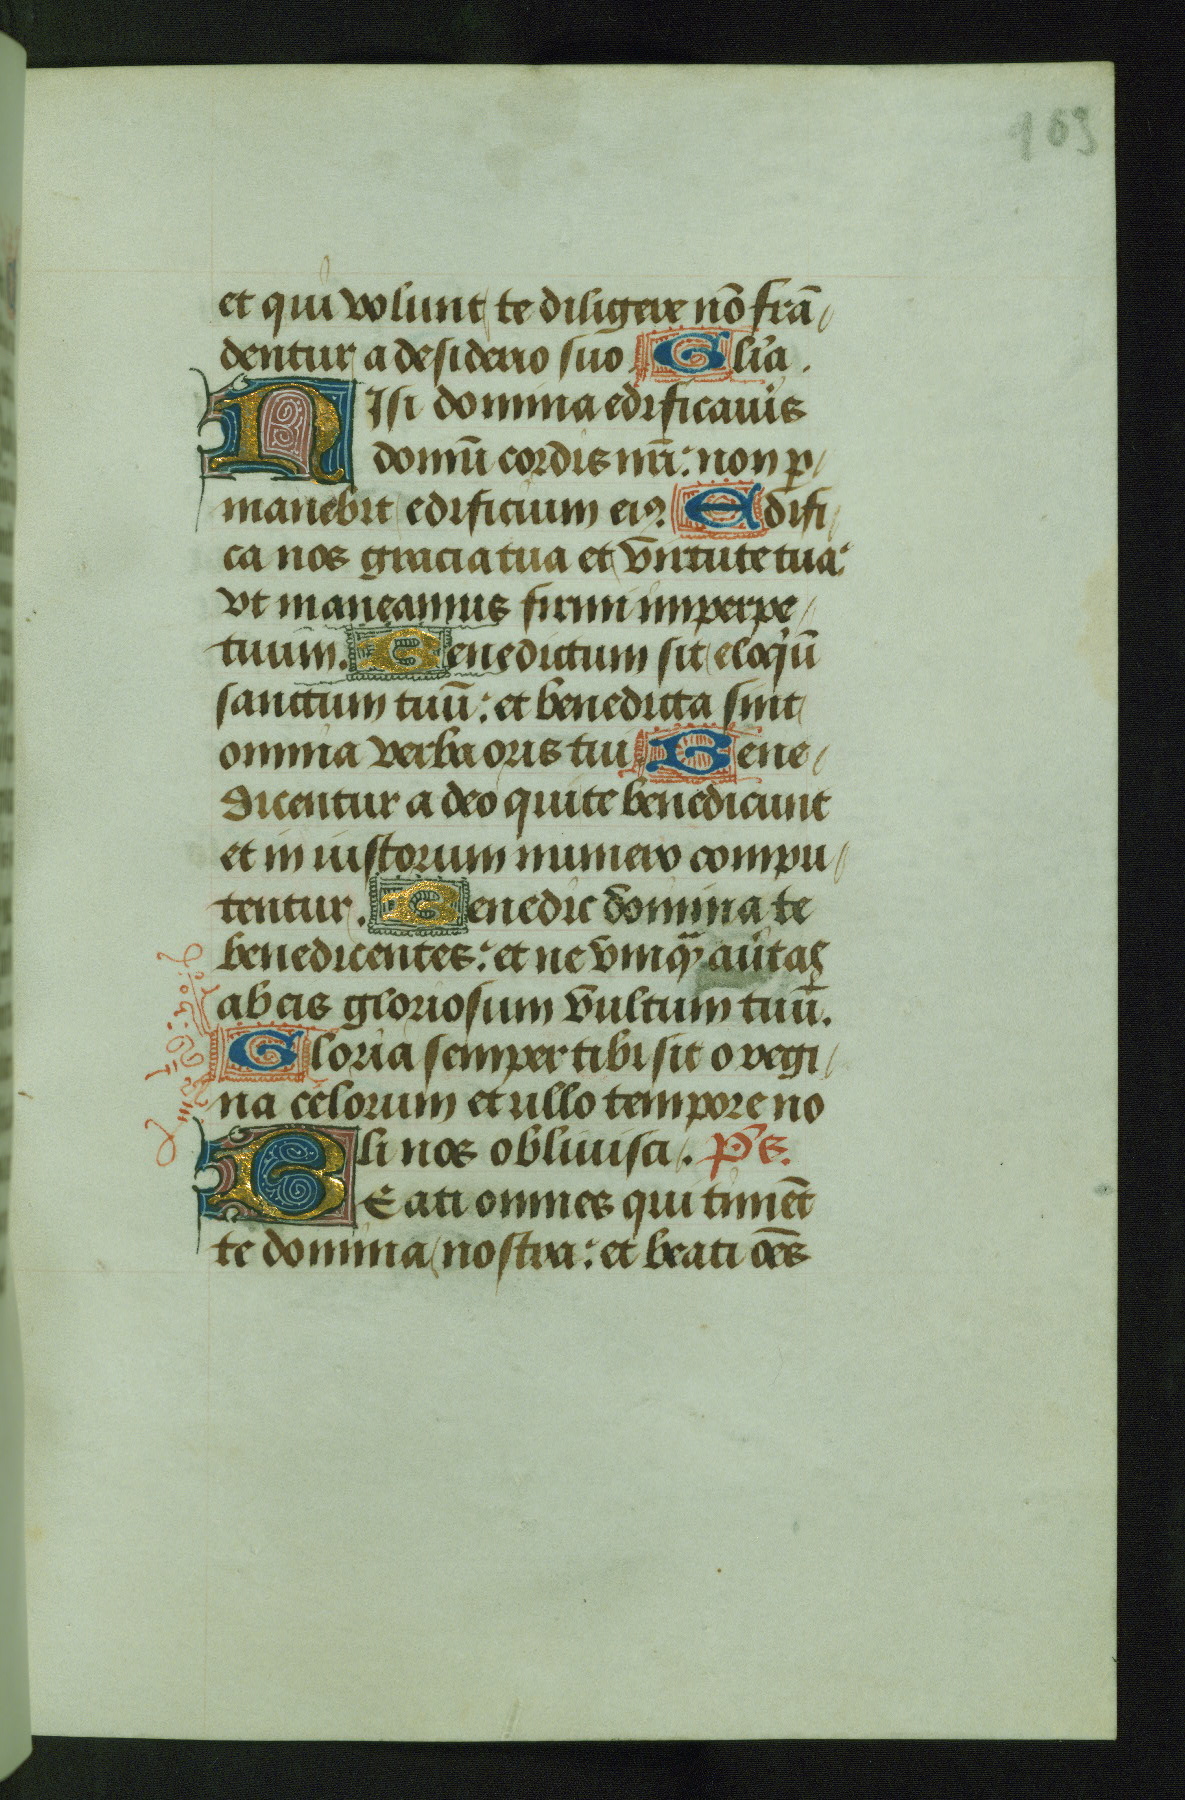 163
et qui volunt te diligere nō frā
dentur a desiderio suo. Glīa.
NIsi domina edificauis
domū cordis nrī: non p
manebit edificium eiꝰ. Edifi
ca nos gracia tua et virtute tua:
vt maneamus firmi imperpe
tuum. Benedictum sit eloqū
sanctum tuū: et benedicta sint
omnia verba oris tui Bene
dicentur a deo qui te benedicunt
et in iustorum numero compu
tentur. Benedic domina te
benedicentes: et ne vnnq̄ auertas
ab eis gloriosum vultum tuū.
Gloria semper tibi sit o regi
na celorum et ullo tempore no
li nos obliuisci. Ps.
BEati omnes qui timēt
te domina nostra: et beati oēs